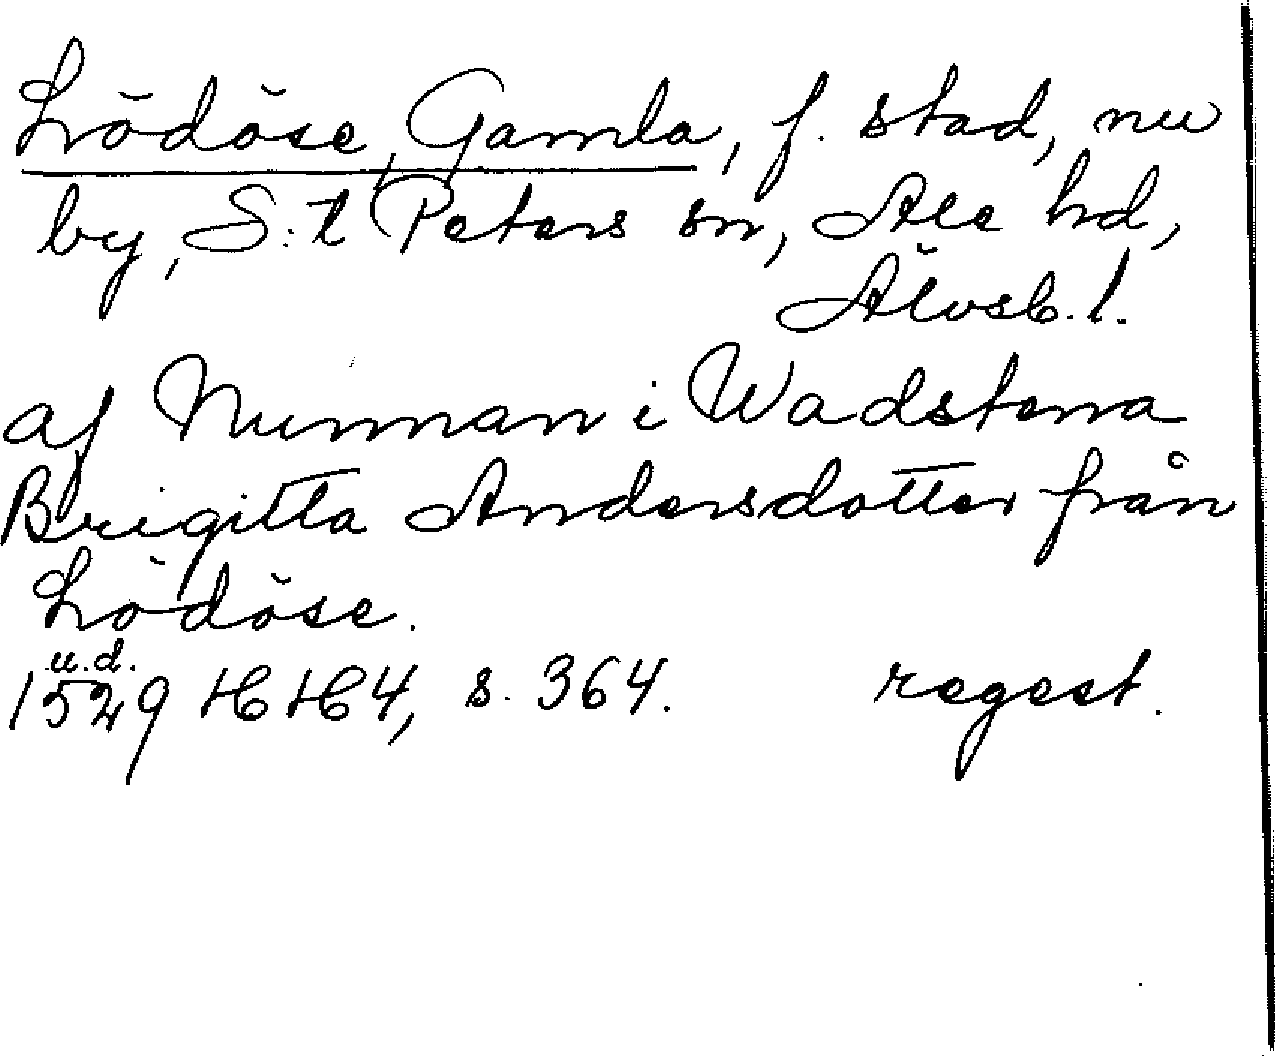 Lödöse, Gamla, f. stad, nu
by, S:t Peters sn, Ale hd,
Älvsb. l.
af Nunnan i Wadstena
Brigitta Andersdotter från
Lödöse.
u.d.
1529 HH 4, s. 364. regest.